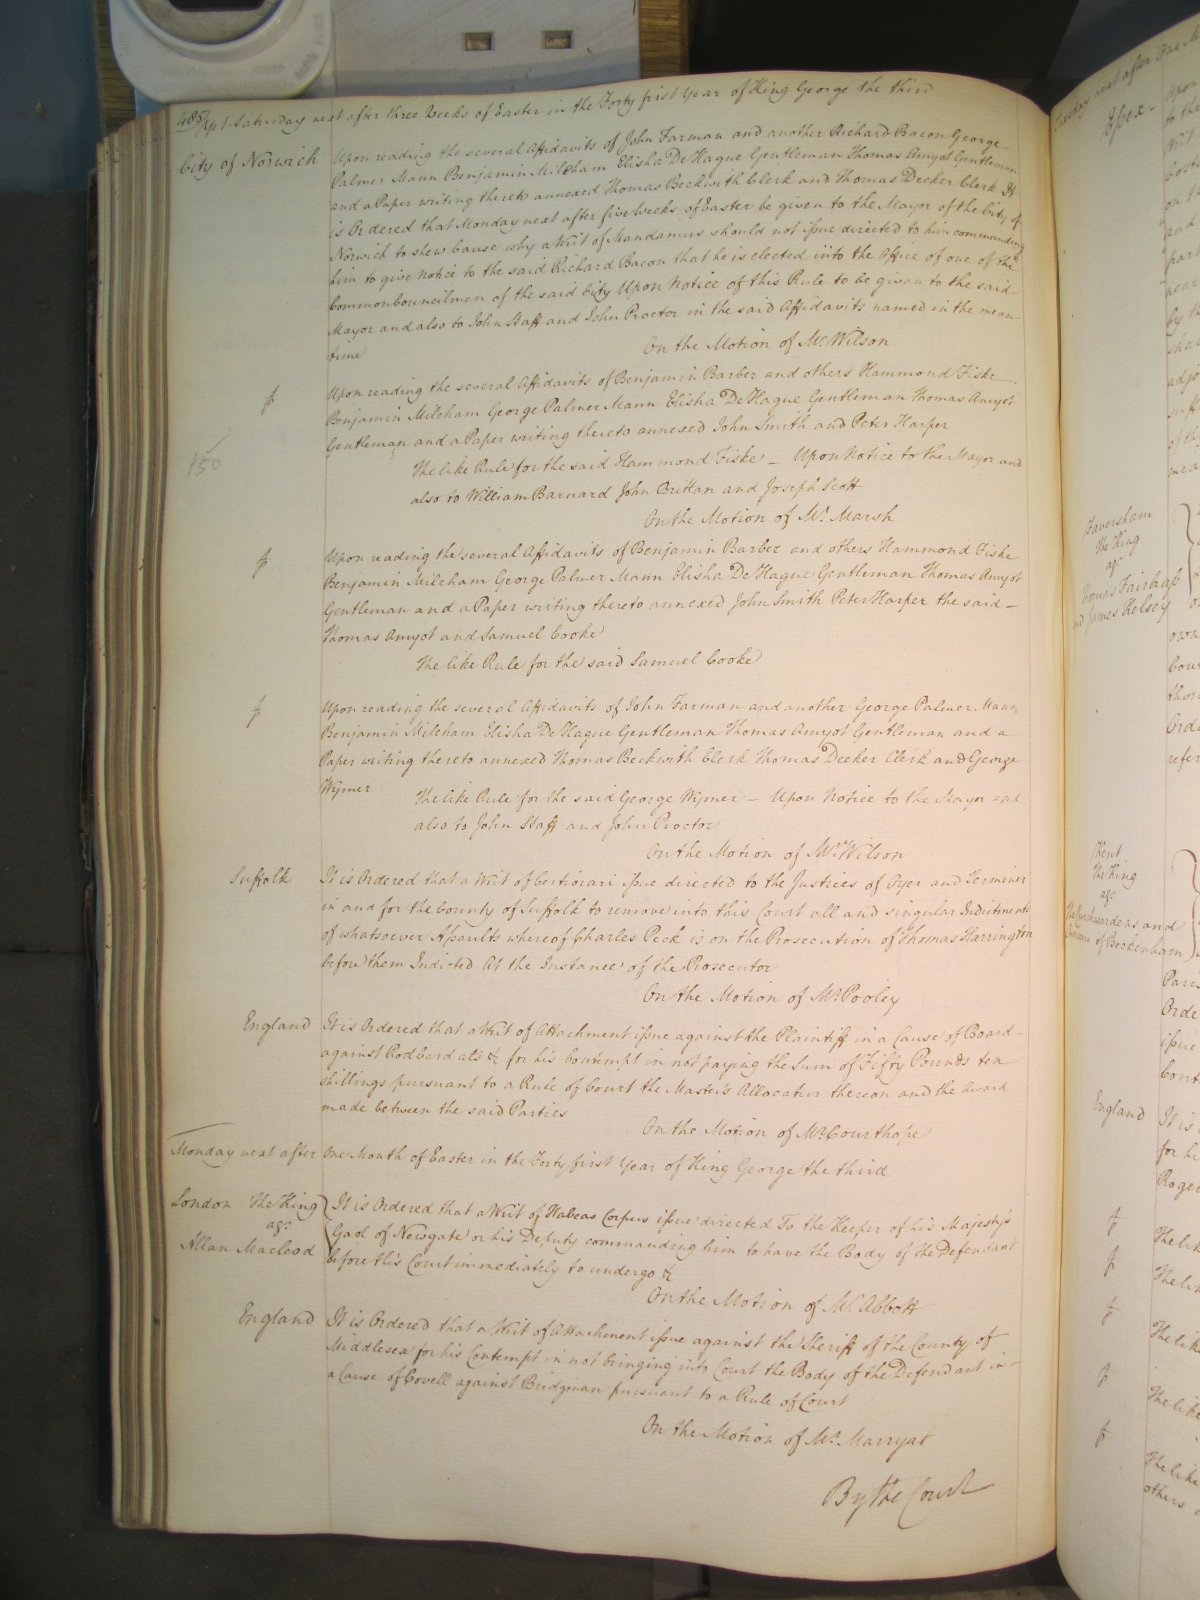 485/ Yet Saturday next after three Weeks of Easter in the Forty first Year of King George the third
City of Norwich
Upon reading the several Affidavits of John Farman and another Richard Bacon George
Palmer Mann Benjamin Mileham Elisha De Hague Gentleman Thomas Amyot Gentleman
and a Paper writing thereto annexed Thomas Beckwith Clerk and Thomas Decker Clerk It
is Ordered that Monday next after five Weeks of Easter be given to the Mayor of the City of
Norwich to shew Cause why a Writ of Mandamus should not issue directed to him commanding
him to give Notice to the said Richard Bacon that he is elected into the Office of one of the
Common Councilmen of the said City Upon Notice of this Rule to be given to the said
Mayor and also to John Staff and John Proctor in the said Affidavits named in the mean
time
On the Motion of Mr. Wilson
Upon reading the several Affidavits of Benjamin Barber and others Hammond Fiske
Benjamin Mileham George Palmer Mann Elisha De Hague Gentleman Thomas Amyot
Gentleman and a Paper writing thereto annexed John Smith and Peter Harper
150
The like Rule for the said Hammond Fiske – Upon Notice to the Mayor and
also to William Barnard John Brittan and Joseph Scott
On the Motion of Mr. Marsh
Upon reading the several Affidavits of Benjamin Barber and others Hammond Fiske
Benjamin Mileham George Palmer Mann Elisha De Hague Gentleman Thomas Amyot
Gentleman and a Paper writing thereto annexed John Smith Peter Harper the said –
Thomas Amyot and Samuel Cooke
The like Rule for the said Samuel Cooke
Upon reading the several Affidavits of John Farman and another George Palmer Mann
Benjamin Mileham Elisha De Hague Gentleman Thomas Amyot Gentleman and a
Paper writing thereto annexed Thomas Beckwith Clerk Thomas Decker Clerk and George
Wymer
The like Rule for the said George Wymer – Upon Notice to the Mayor and
also to John Staff and John Proctor
On the Motion of Mr. Wilson
Suffolk
It is Ordered that a Writ of Certiorari issue directed to the Justices of Oyer and Terminer
in and for the County of Suffolk to remove into this Court all and singular Indictments
of whatsoever Assaults whereof Charles Peck is on the Prosecution of Thomas Harrington
before them Indicted At the Instance of the Prosecutor
On the Motion of Mr. Pooley
England
It is Ordered that a Writ of Attachment issue against the Plaintiff in a Cause of Board
against Rodbard als &c for his Contempt in not paying the Sum of Fifty Pounds ten
shillings pursuant to a Rule of Court the Master's Allocatur thereon and the Award
made between the said Parties
On the Motion of Mr. Courthope
Monday next after One Month of Easter in the Forty first Year of King George the third
London The King
agt.
Allan Macleod
It is Ordered that a Writ of Habeas Corpus issue directed To the Keeper of his Majesty's
Gaol of Newgate or his Deputy commanding him to have the Body of the Defendant
before this Court immediately to undergo &c
On the Motion of Mr. Abbott
England
It is Ordered that a Writ of Attachment issue against the Sheriff of the County of
Middlesex for his Contempt in not bringing into Court the Body of the Defendant in –
a Cause of Covell against Bridgman pursuant to a Rule of Court
On the Motion of Mr. Marryat
By the Court
Faversham
The King
agt.
Thomas Fairbass
and James Kelsey
Kent
The King
agt.
The Churchwardens and
of Beckenham
England
It is
for hi
Roger
The lik
The lik
The lik
The like
The like
others